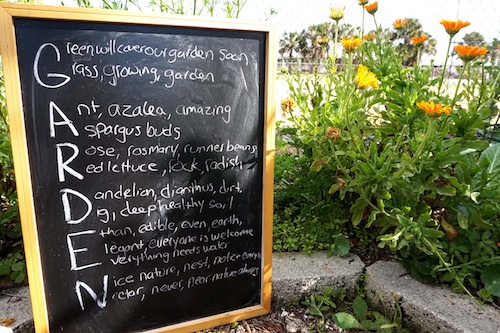 Green will cover our garden soon
Grass, growing, garden
Ant, azalea, amazing
Aspargus buds
Rose, rosmary, runner beans
Red lettuce, Rock, Radish
Dandelian, dianthus, dirt
Dig, deep healthy soil
Ethan, edible, even, earth,
Elegant, everyone is welcome
Everything needs water
Nice nature, nest, notice
Nectar, never, near nature always